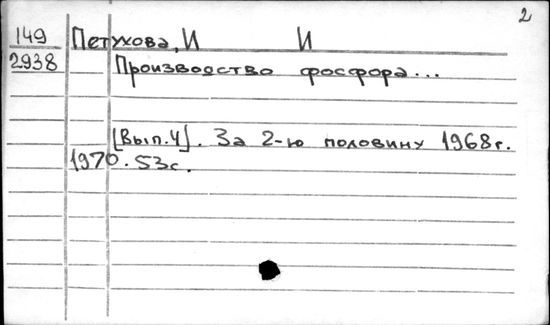 2
149 Петухова, И И
2938 Производство фосфора...
[Вып.4]. За 2-ю половину 1968г.
1970. 53с.